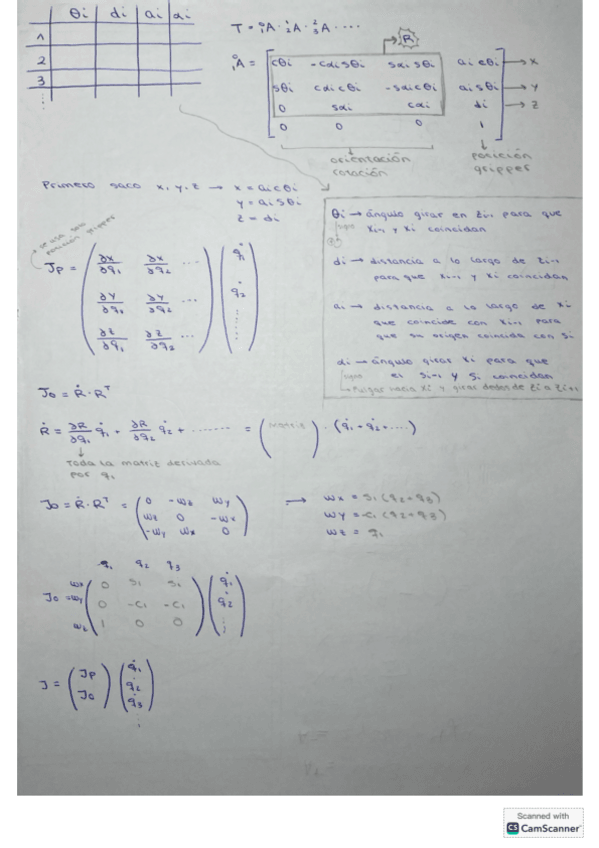 θi di ai αi
1
2
3
⋮
T = ⁰₁A · ¹₂A · ²₃A ····
R
⁰₁A = [ cθi -cαi sθi sαi sθi ai cθi ] → x
sθi cαi cθi -sαi cθi ai sθi → y
0 sαi cαi di → z
0 0 0 1
orientación
rotación
posición
gripper
Primero saco x, y, z → x = ai cθi
y = ai sθi
z = di
posición gripper
Jp = ( ∂x/∂q1 ∂x/∂q2 ··· ) ( q̇1 )
∂y/∂q1 ∂y/∂q2 ··· q̇2
∂z/∂q1 ∂z/∂q2 ··· ⋮
θi → ángulo girar en zi-1 para que
xi-1 y xi coincidan
di → distancia a lo largo de zi-1
para que xi-1 y xi coincidan
ai → distancia a lo largo de xi
que coincide con xi-1 para
que su origen coincida con Si
αi → ángulo girar xi para que
el Si-1 y Si coincidan
Pulgar hacia xi y girar dedos de
Jo = Ṙ · Rᵀ
Ṙ = ∂R/∂q1 q̇1 + ∂R/∂q2 q̇2 + ········ = ( Matriz ) · (q̇1 + q̇2 + ....)
Toda la matriz derivada
por q1
Jo = Ṙ · Rᵀ = ( 0 -wz wy ) → wx = s1 (q2 + q3)
wz 0 -wx wy = -c1 (q2 + q3)
-wy wx 0 wz = q1
q1 q2 q3
wx ( 0 s1 s1 ) ( q̇1 )
Jo = wy 0 -c1 -c1 q̇2
wz 1 0 0 ⋮
J = ( Jp ) ( q̇1 )
Jo q̇2
q̇3
⋮
Scanned with
CS CamScanner